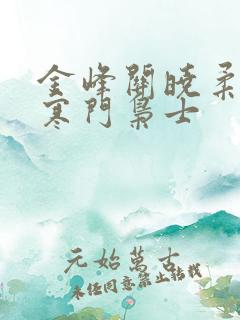 金峰關曉柔
寒門梟士
元始萬古
未经同意禁止转载